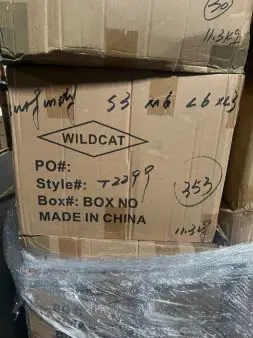 30
11.3kg
S3 M6 L6 XL3
WILDCAT
PO#:
Style#: T2299
353
Box#: BOX NO
MADE IN CHINA
11.3kg